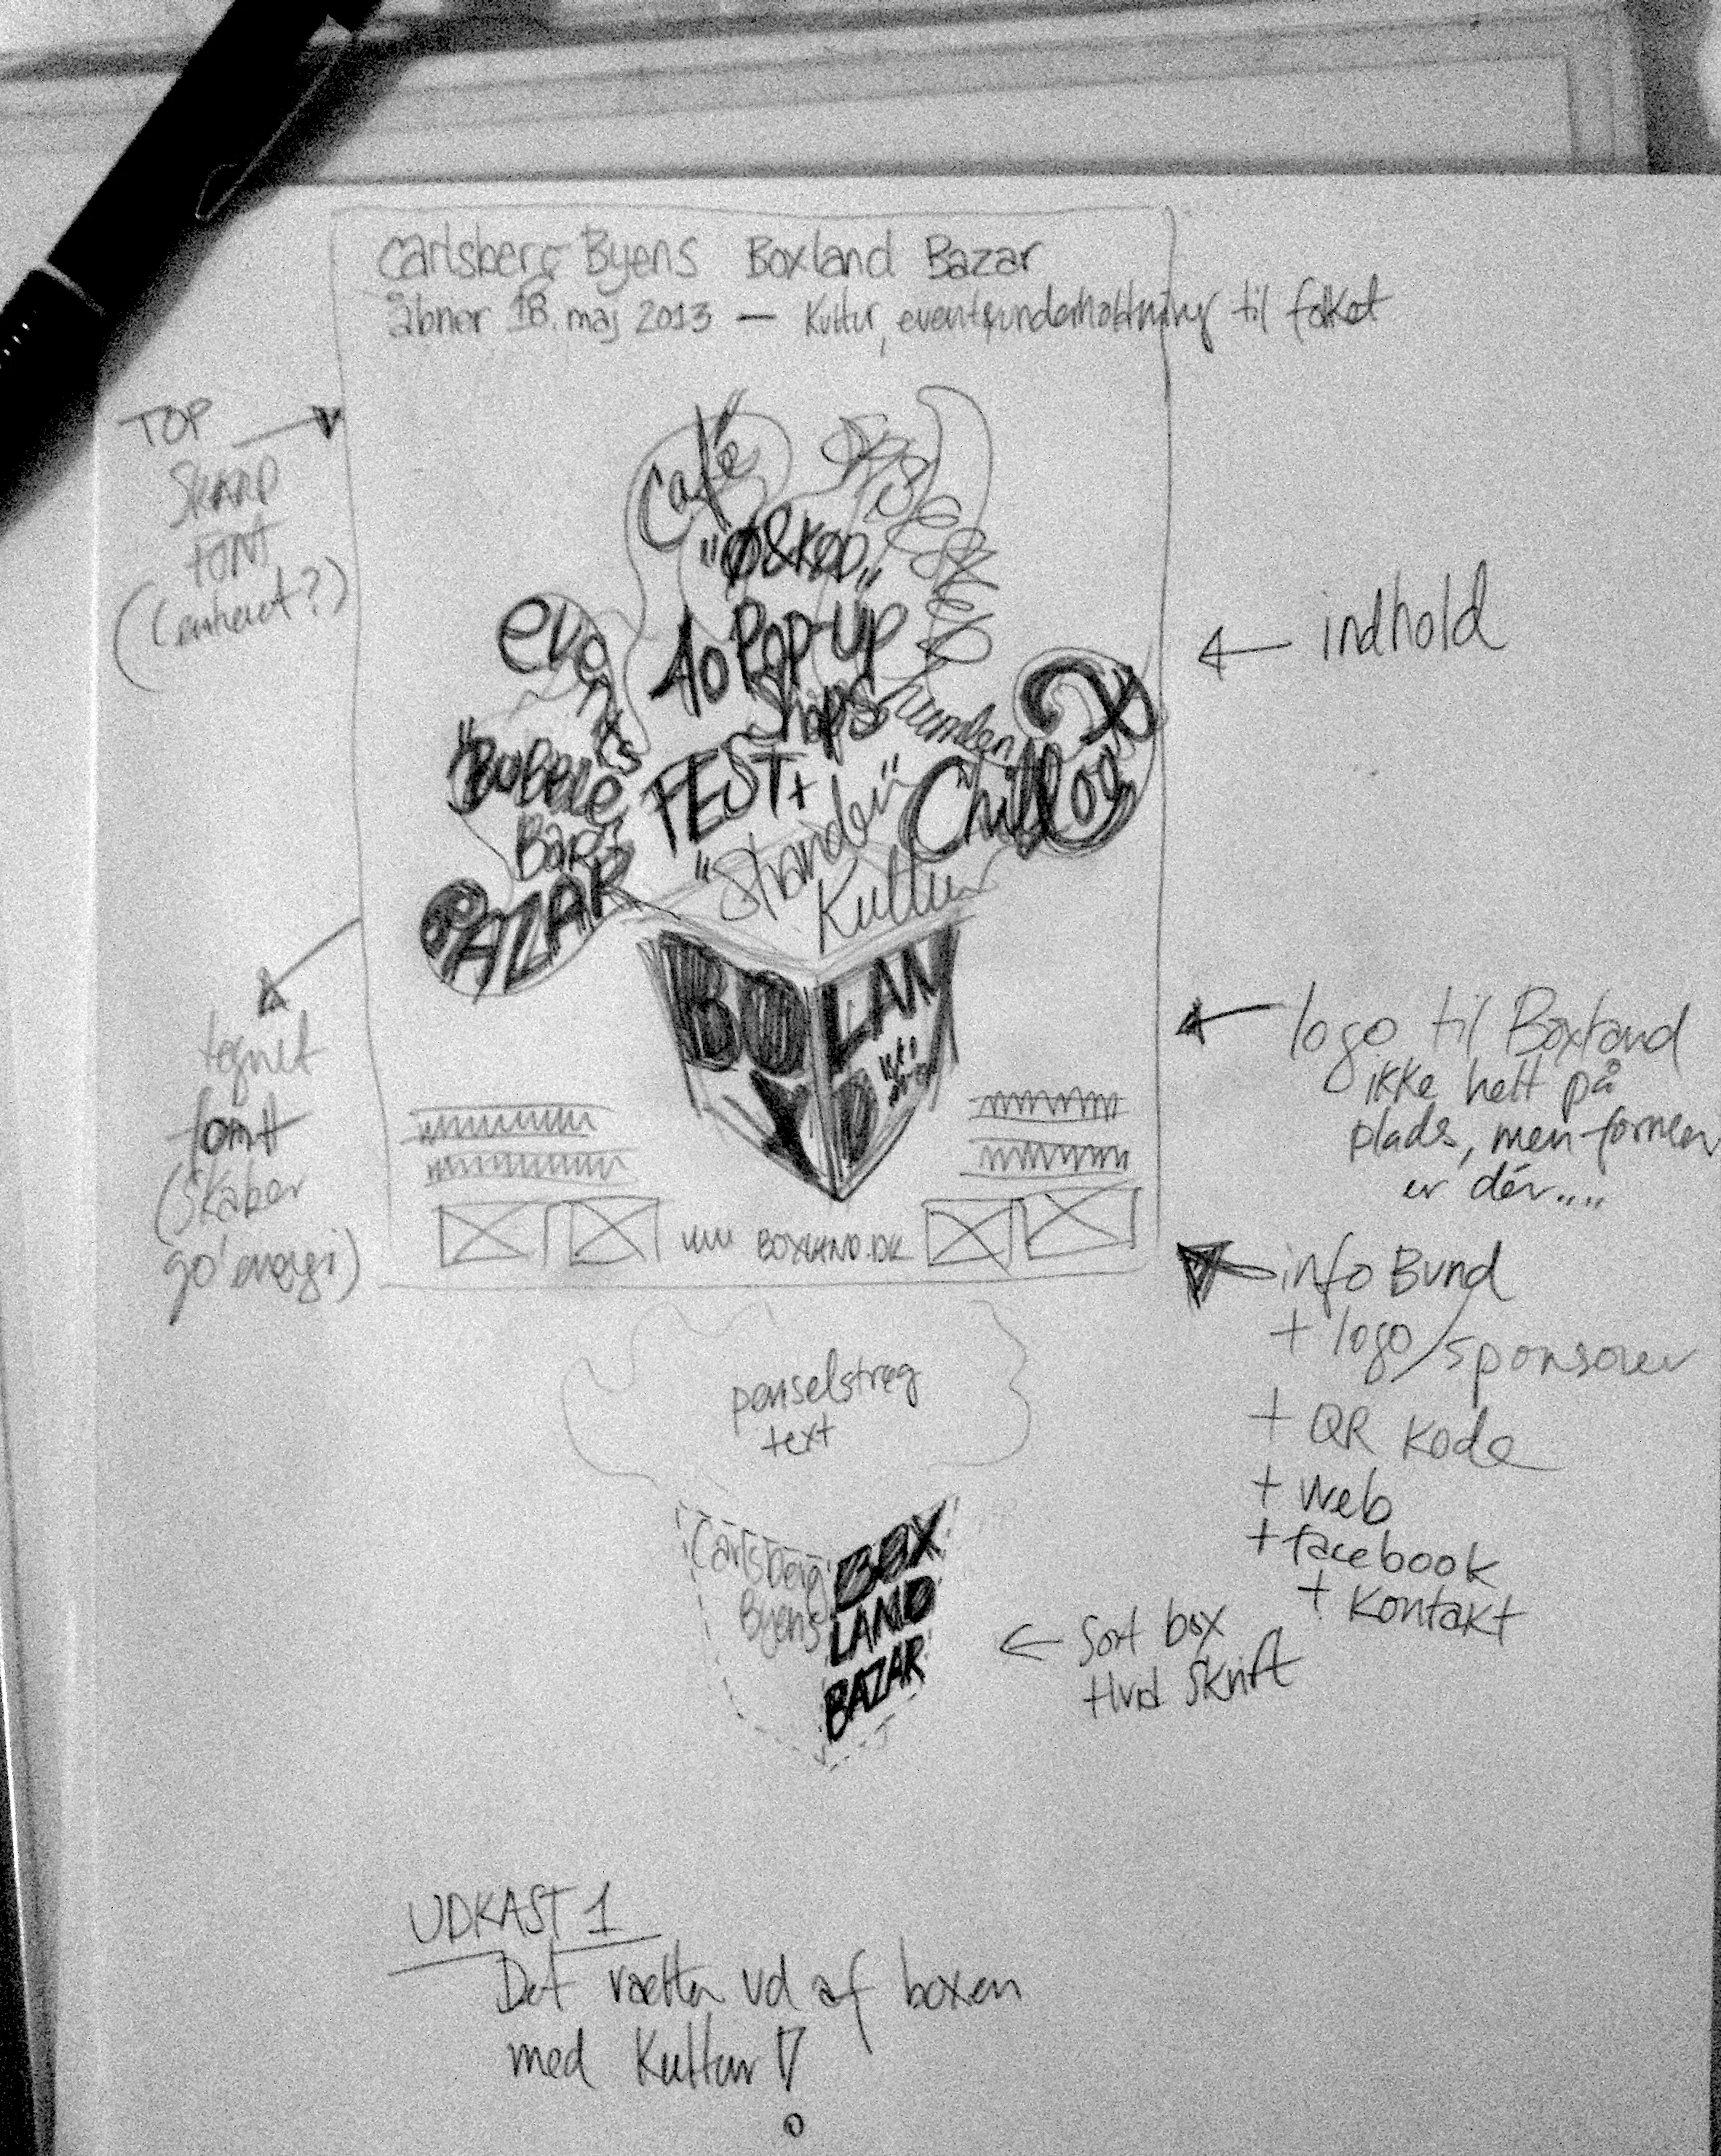 Carlsberg Byens Boxland Bazar
åbner 18. maj 2013 — Kultur, events & underholdning til folket
TOP
SKARP
FONT
(centreret?)
Café
"ØL & KØD"
events
10 Pop-up
Shops
"Bobble
Bar"
FEST +
"Stranden"
Chill
Kultur
BAZAR
BOX
LAND
← indhold
tegnet
font
(skaber
go' energi)
logo til Boxland
ikke helt på
plads, men formen
er dér....
www BOXLAND.DK
info Bund
+ logo/sponsorer
+ QR Kode
+ web
+ facebook
+ Kontakt
penselstrøg
text
Carlsberg
Byens
BOX
LAND
BAZAR
← Sort box
Hvid Skrift
UDKAST 1
Det vælter ud af boxen
med Kultur!